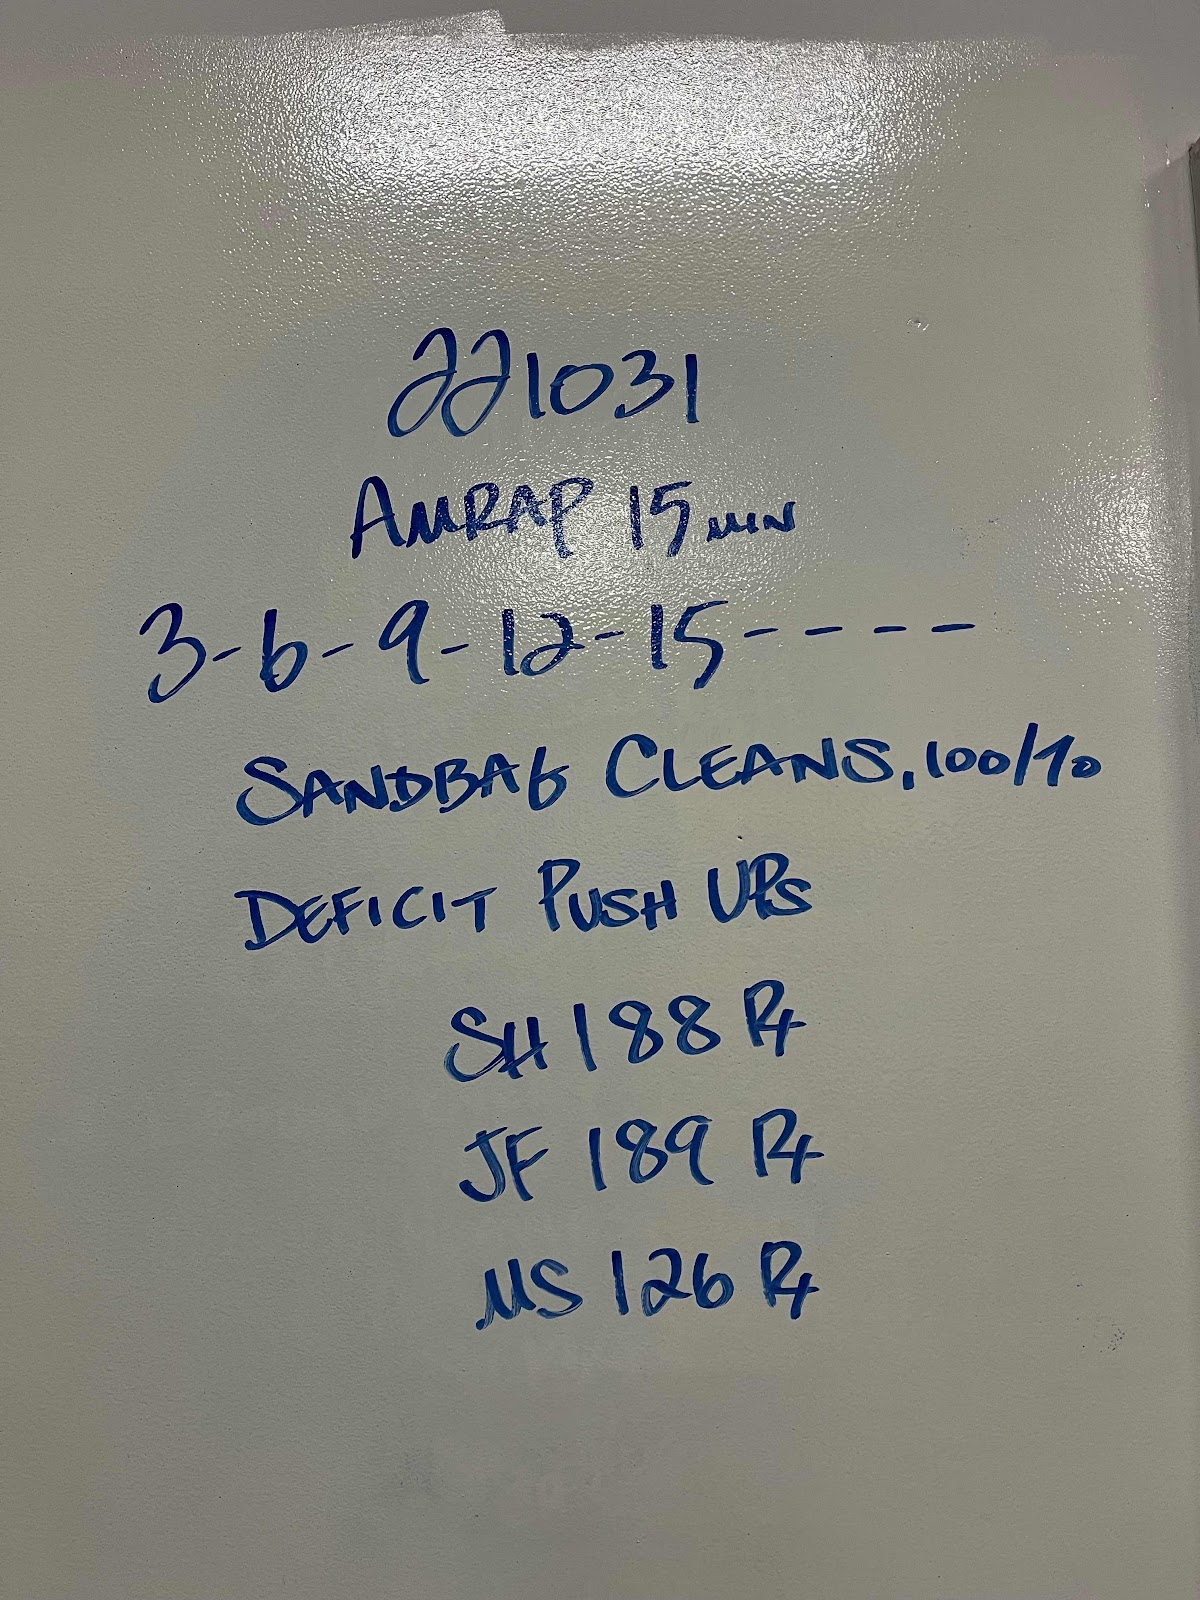 221031
AMRAP 15 MIN
3-6-9-12-15-----
SANDBAG CLEANS, 100/70
DEFICIT PUSH UPS
SH 188 Rx
JF 189 Rx
MS 126 Rx